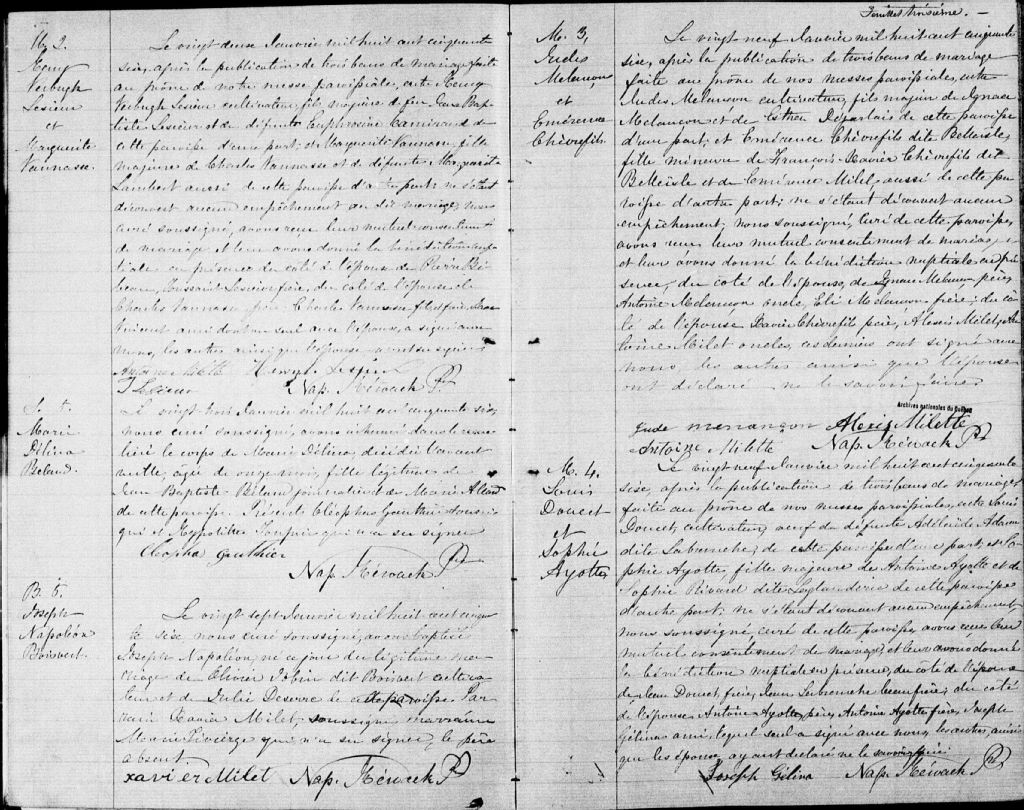 M. 2.
Henry
Verbugh
Lesieur
et
Marguerite
Vannasse.
Le vingt deux Janvier mil huit cent cinquante
six, après la publication de trois bans de mariage faite
au prône de notre messe paroissiale, entre Henry
Verbugh Lesieur cultivateur, fils majeur de feu Jean Bap-
tiste Lesieur et de défunte Euphrosine Camirand de
cette paroisse d'une part; et Marguerite Vannasse, fille
majeure de Charles Vannasse et de défunte Marguerite
Lambert aussi de cette paroisse d'autre part; ne s'étant
découvert aucun empêchement au dit mariage, nous
curé soussigné, avons reçu leur mutuel consentement
de mariage et leur avons donné la bénédiction nup-
tiale en présence du coté de l'épouse de Pierre
Lesieur frère, du coté de l'épouse de
Charles Vannasse père, Charles Vannasse
ami dont un seul avec l'époux, a signé avec
nous, les autres ainsi que l'épouse
Nap. Kérouack Ptr
S. 4.
Marie
Délina
Beland.
Le vingt trois Janvier mil huit cent cinquante six,
nous curé soussigné, avons inhumé dans le cime-
tière le corps de Marie Délina, décédée l'avant
veille, agée de onze mois, fille légitime de
Jean Baptiste Béland journalier et de Marie Allard
de cette paroisse. Présent Cléophas Gauthier soussi-
gné et Hyppolite qui n'a su signer
Cleopha gauthier
Nap. Kérouack Ptr
B. 5.
Joseph
Napoléon
Boisvert.
Le vingt sept Janvier mil huit cent cinquan-
te six nous curé soussigné, avons baptisé
Joseph Napoléon, né ce jour du légitime ma-
riage de Olivier dit Boisvert cultiva-
teur et de Julie Deserre de cette paroisse. Par-
rain Xavier Milet, soussigné marraine
Marie qui n'a su signer, le père
absent.
xavier Milet Nap. Kérouack Ptr
Feuillet troisième.
M. 3,
Judes
Melancon,
et
Emérence
Chèvrefils.
Le vingt neuf Janvier mil huit cent cinquante
six, après la publication de trois bans de mariage
faite au prône de nos messes paroissiales, entre
Judes Melancon cultivateur, fils majeur de Ignace
Melancon et de Esther Désparlais de cette paroisse
d'une part; et Emérence Chèvrefils dit Belleisle,
fille mineure de François Xavier Chèvrefils dit
Belleisle et de Emérence Milet, aussi de cette pa-
roisse d'autre part; ne s'étant découvert aucun
empêchement; nous soussigné, curé de cette paroisse,
avons reçu leur mutuel consentement de mariage,
et leur avons donné la bénédiction nuptiale en pré-
sence, du coté de l'époux, de Ignace Melancon père,
Antoine Melancon oncle, Eli Melancon frère; du co-
té de l'épouse Xavier Chèvrefils père, Alexis Milet, An-
toine Milet oncles, ces derniers ont signé avec
nous, les autres ainsi que l'épouse
ont déclaré ne le savoir faire
Archives nationales du Québec
Jude menançon Alexis Milette
Antoine Milette Nap. Kérouack Ptr
M. 4.
Louis
Doucet
et
Sophie
Ayotte,
Le vingt neuf Janvier mil huit cent cinquante
six, après la publication de trois bans de mariage
faite au prône de nos messes paroissiales, entre Louis
Doucet, cultivateur, veuf de défunte Adélaïde Adam
dite Labranche, de cette paroisse d'une part, et So-
phie Ayotte, fille majeure de Antoine Ayotte et de
Sophie Rivard dite Loglanderie de cette paroisse
d'autre part; ne s'étant découvert aucun empêchement,
nous soussigné, curé de cette paroisse, avons reçu leur
mutuel consentement de mariage et leur avons donné
la bénédiction nuptiale en présence, du coté de l'époux
de Jean Doucet, frère, Jean Labranche beau frère; du coté
de l'épouse Antoine Ayotte, père, Antoine Ayotte frère, Joseph
Gélina ami, lequel seul a signé avec nous, les autres, ainsi
que les époux, ayant déclaré ne le savoir faire
Joseph Gélina Nap. Kérouack Ptr